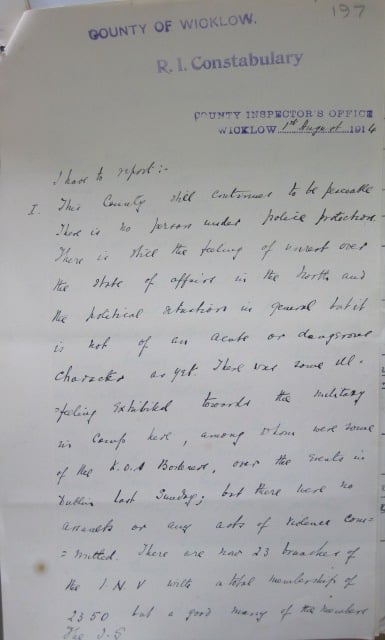 197
COUNTY OF WICKLOW.
R. I. Constabulary
COUNTY INSPECTOR'S OFFICE
WICKLOW 1st August 1914
I have to report:-
I. This County still continues to be peaceable
There is no person under police protection.
There is still the feeling of unrest over
the state of affairs in the North and
the political situation in general but it
is not of an acute or dangerous
character as yet There was some ill-
=feeling exhibited towards the military
in camp here, among whom were some
of the K.O.S Borderers, over the events in
Dublin last Sunday; but there were no
assaults or any acts of violence com=
=mitted. There are now 23 branches of
the I.N.V with a total membership of
2350 but a good many of the members
The I.G